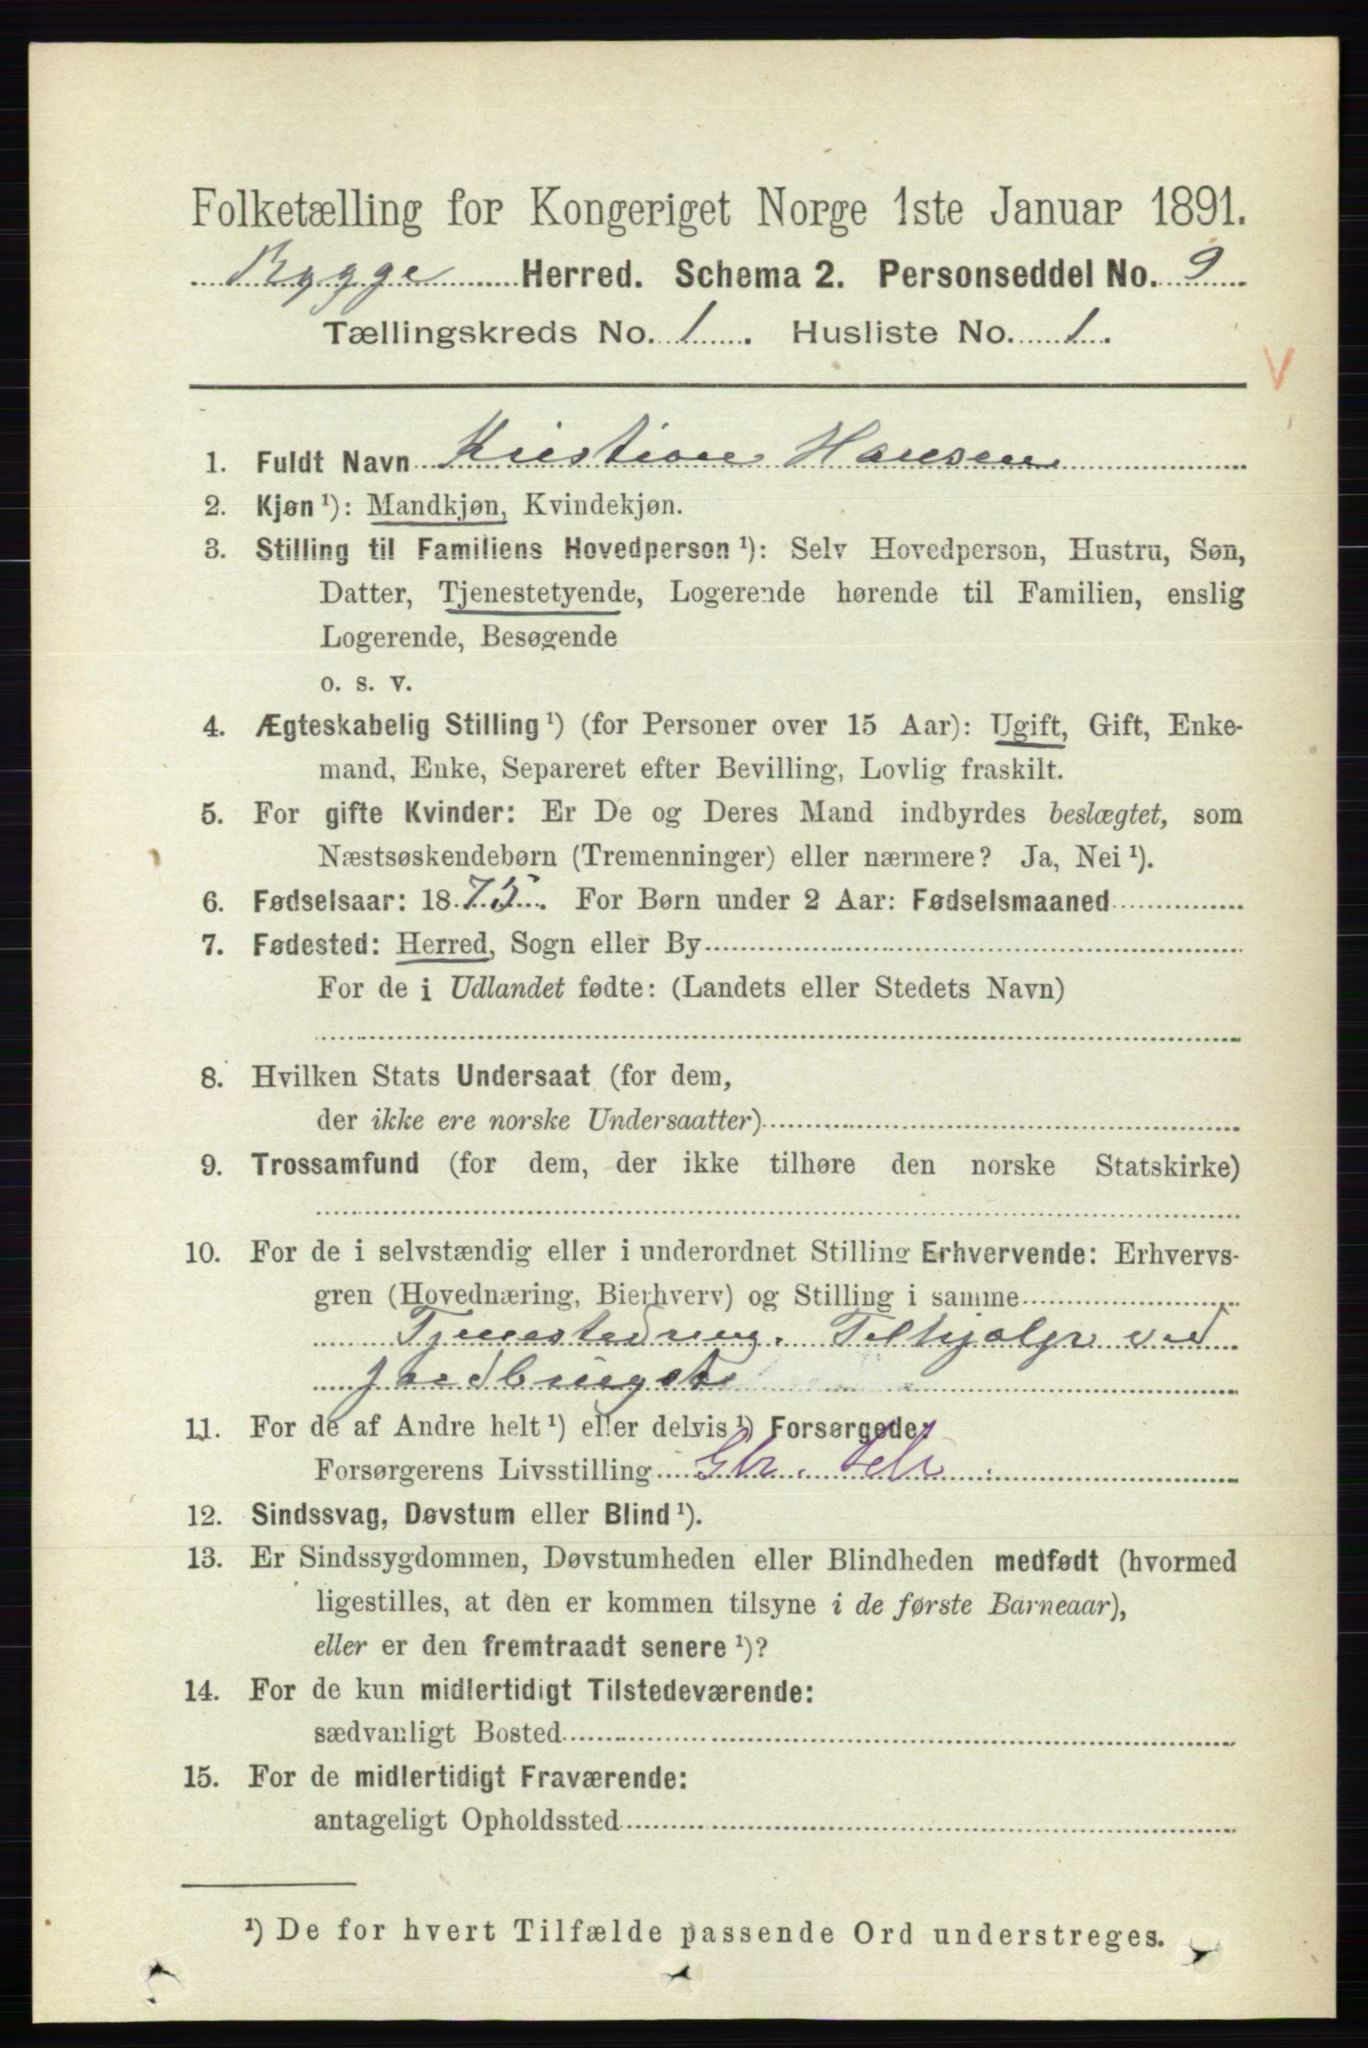 Folketælling for Kongeriget Norge 1ste Januar 1891.
Rygge Herred. Schema 2. Personseddel No. 9
Tællingskreds No. 1. Husliste No. 1.
V
1. Fuldt Navn Kristian Hansen
2. Kjøn ¹): Mandkjøn, Kvindekjøn.
3. Stilling til Familiens Hovedperson ¹): Selv Hovedperson, Hustru, Søn,
Datter, Tjenestetyende, Logerende hørende til Familien, enslig
Logerende, Besøgende
o. s. v.
4. Ægteskabelig Stilling ¹) (for Personer over 15 Aar): Ugift, Gift, Enke-
mand, Enke, Separeret efter Bevilling, Lovlig fraskilt.
5. For gifte Kvinder: Er De og Deres Mand indbyrdes beslægtet, som
Næstsøskendebørn (Tremenninger) eller nærmere? Ja, Nei ¹).
6. Fødselsaar: 1875. For Børn under 2 Aar: Fødselsmaaned
7. Fødested: Herred, Sogn eller By
For de i Udlandet fødte: (Landets eller Stedets Navn)
8. Hvilken Stats Undersaat (for dem,
der ikke ere norske Undersaatter)
9. Trossamfund (for dem, der ikke tilhøre den norske Statskirke)
10. For de i selvstændig eller i underordnet Stilling Erhvervende: Erhvervs-
gren (Hovednæring, Bierhverv) og Stilling i samme
Tjenestedreng. Tilhjælper ved
Jordbruget
11. For de af Andre helt ¹) eller delvis ¹) Forsørgede:
Forsørgerens Livsstilling
12. Sindssvag, Døvstum eller Blind ¹).
13. Er Sindssygdommen, Døvstumheden eller Blindheden medfødt (hvormed
ligestilles, at den er kommen tilsyne i de første Barneaar),
eller er den fremtraadt senere ¹)?
14. For de kun midlertidigt Tilstedeværende:
sædvanligt Bosted
15. For de midlertidigt Fraværende:
antageligt Opholdssted
¹) De for hvert Tilfælde passende Ord understreges.